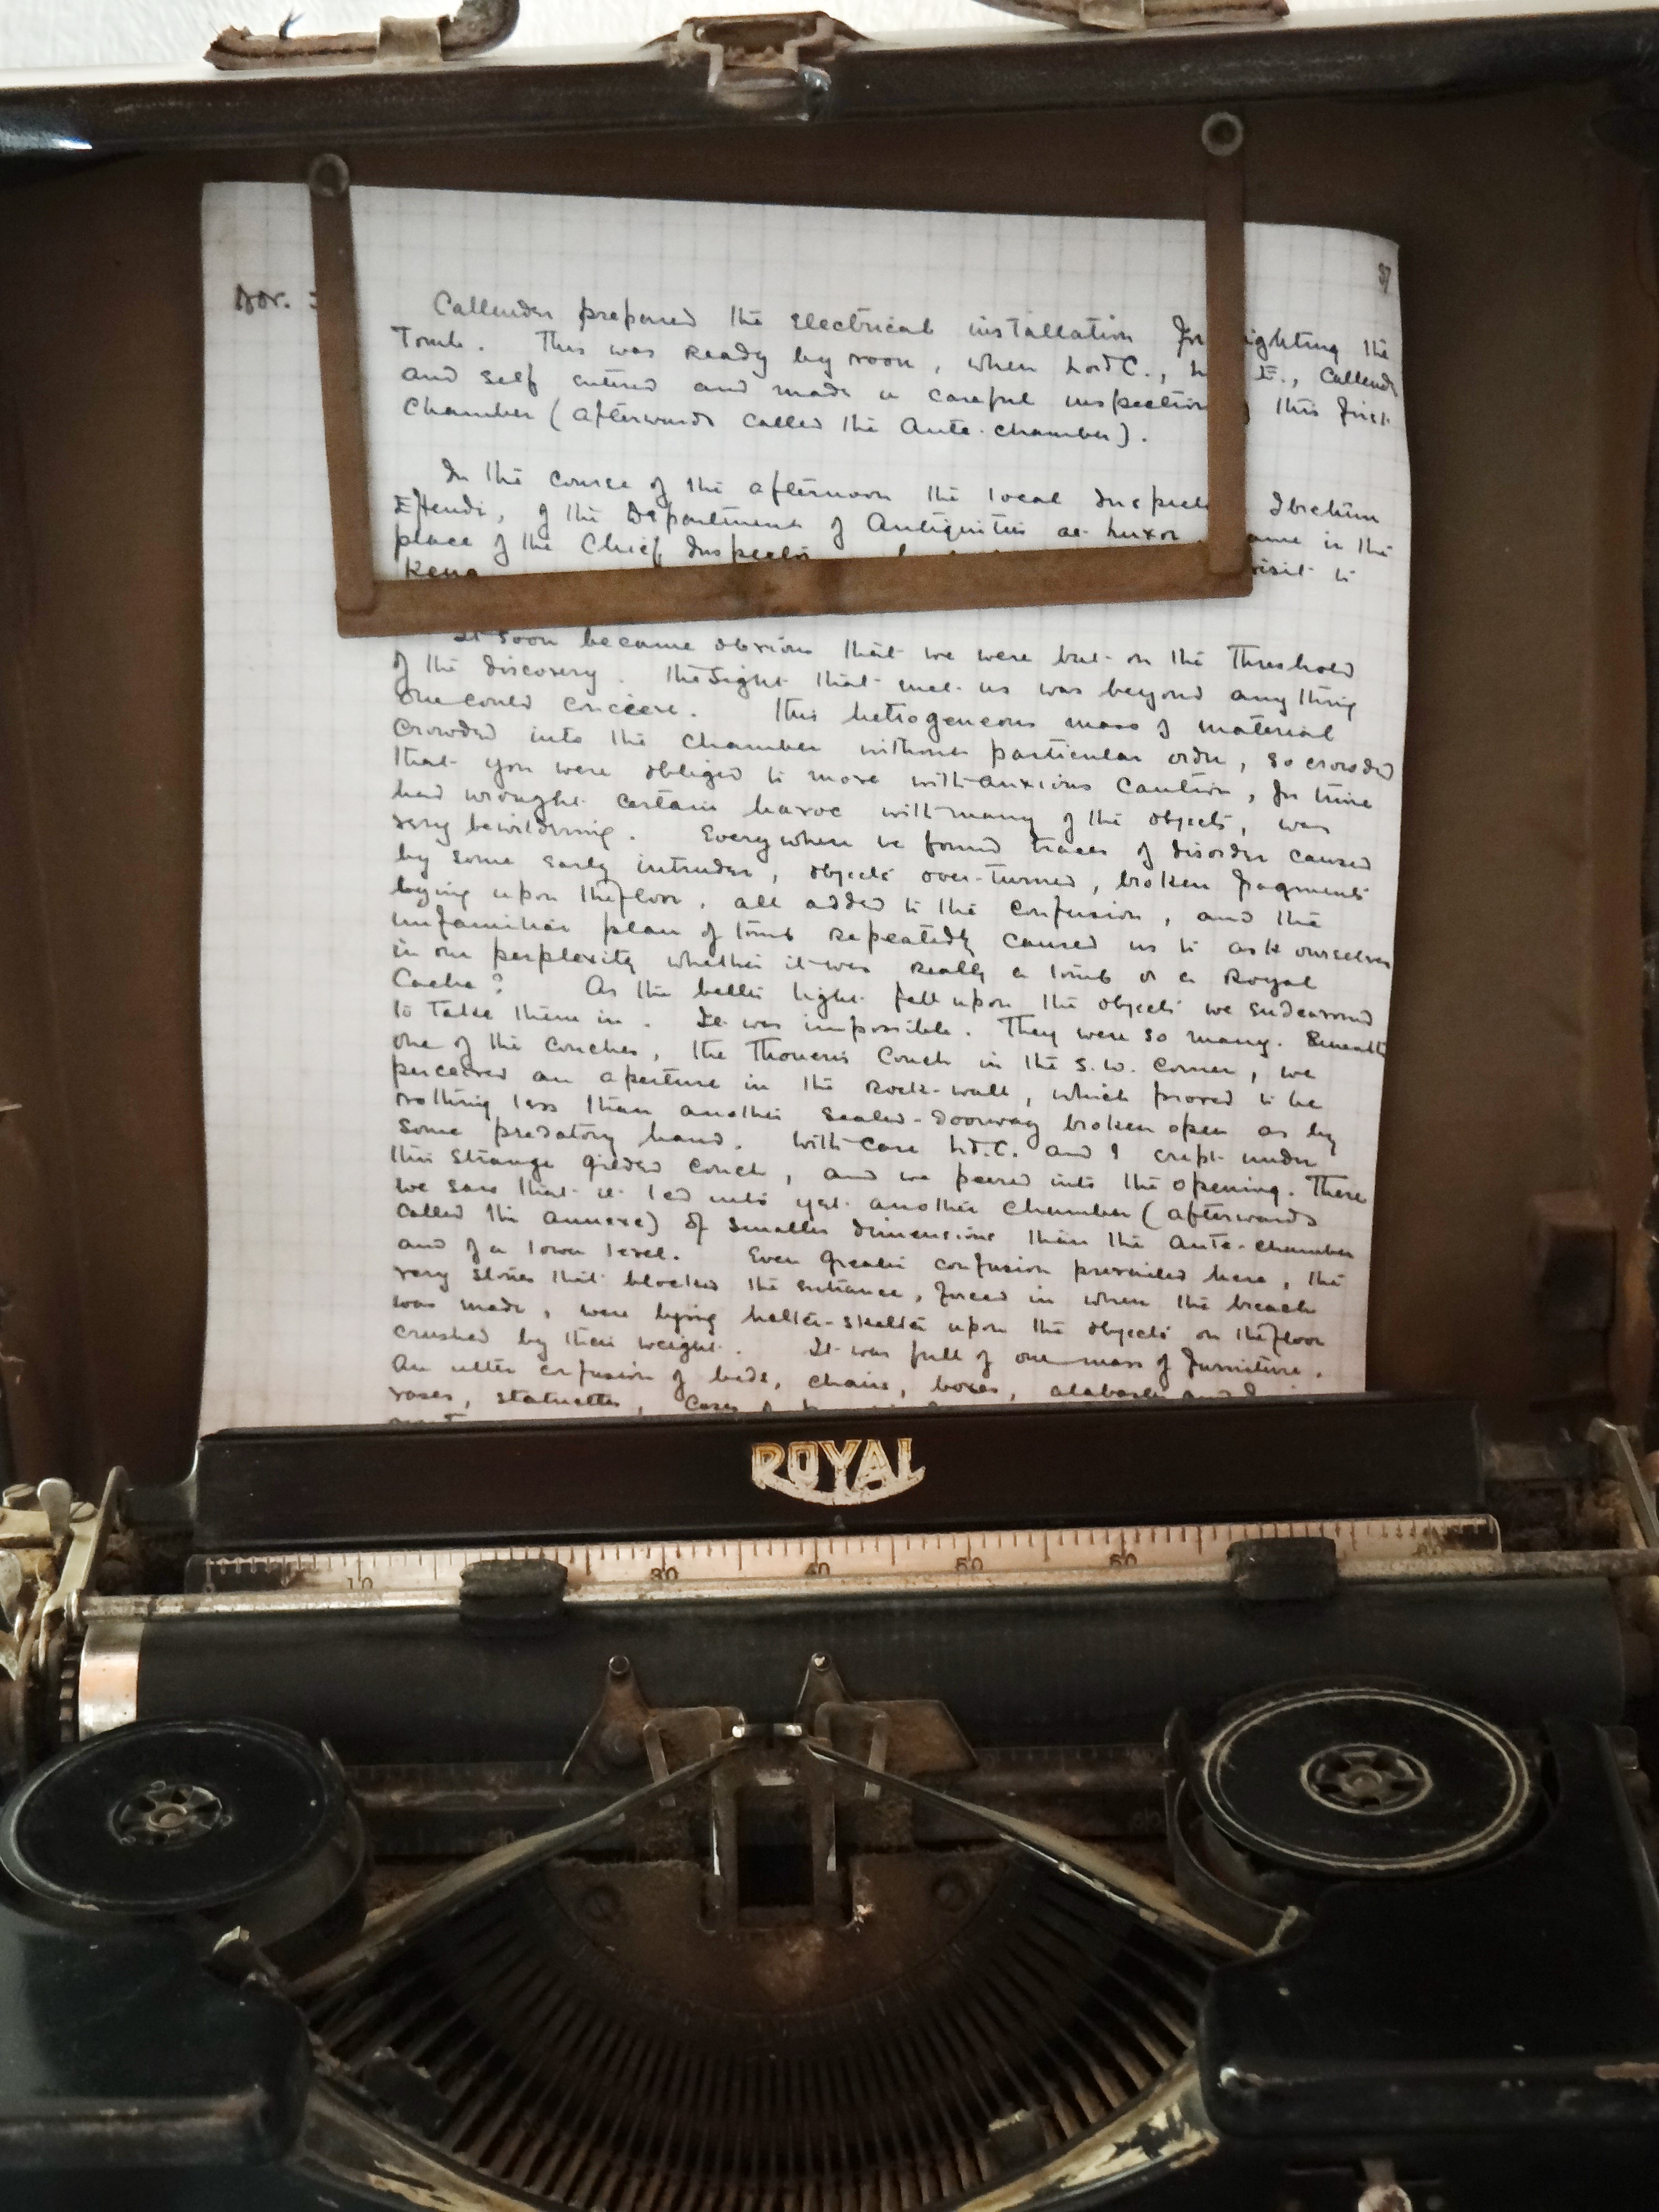 37
Nov.
Callender prepared the electrical installation for lighting the
Tomb. This was ready by noon, when Lord C., E., Callender
and self entered and made a careful inspection this first
Chamber (afterwards called the Ante-chamber).
In the course of the afternoon the local Inspector Ibrahim
Effendi, of the Department of Antiquities at Luxor, came in the
place of the Chief Inspector
Kena visit to
It soon became obvious that we were but on the threshold
of the discovery. The sight that met us was beyond anything
one could conceive. This hetrogeneous mass of material
crowded into the chamber without particular order, so crowded
that you were obliged to move with anxious caution, for time
had wrought certain havoc with many of the objects, was
very bewildering. Everywhere we found traces of disorder caused
by some early intruder, objects over-turned, broken fragments
lying upon the floor, all added to the confusion, and the
unfamiliar plan of tomb repeatedly caused us to ask ourselves
in our perplexity whether it was really a tomb or a Royal
Cache? As the better light fell upon the objects we endeavoured
to take them in. It was impossible. They were so many. Beneath
one of the couches, the Thoueris Couch in the S.W. corner, we
perceived an aperture in the rock-wall, which proved to be
nothing less than another sealed-doorway broken open as by
some predatory hand. With care Ld. C. and I crept under
this strange gilded couch, and we peered into the opening. There
we saw that it led into yet another chamber (afterwards
called the Annexe) of smaller dimensions than the Ante-chamber
and of a lower level. Even greater confusion prevailed here, the
very stones that blocked the entrance, forced in when the breach
was made, were lying helter-skelter upon the objects on the floor
crushed by their weight. It was full of one mass of furniture.
An utter confusion of beds, chairs, boxes, alabaster and
vases, statuettes, cases of
ROYAL
10 30 40 50 60 80